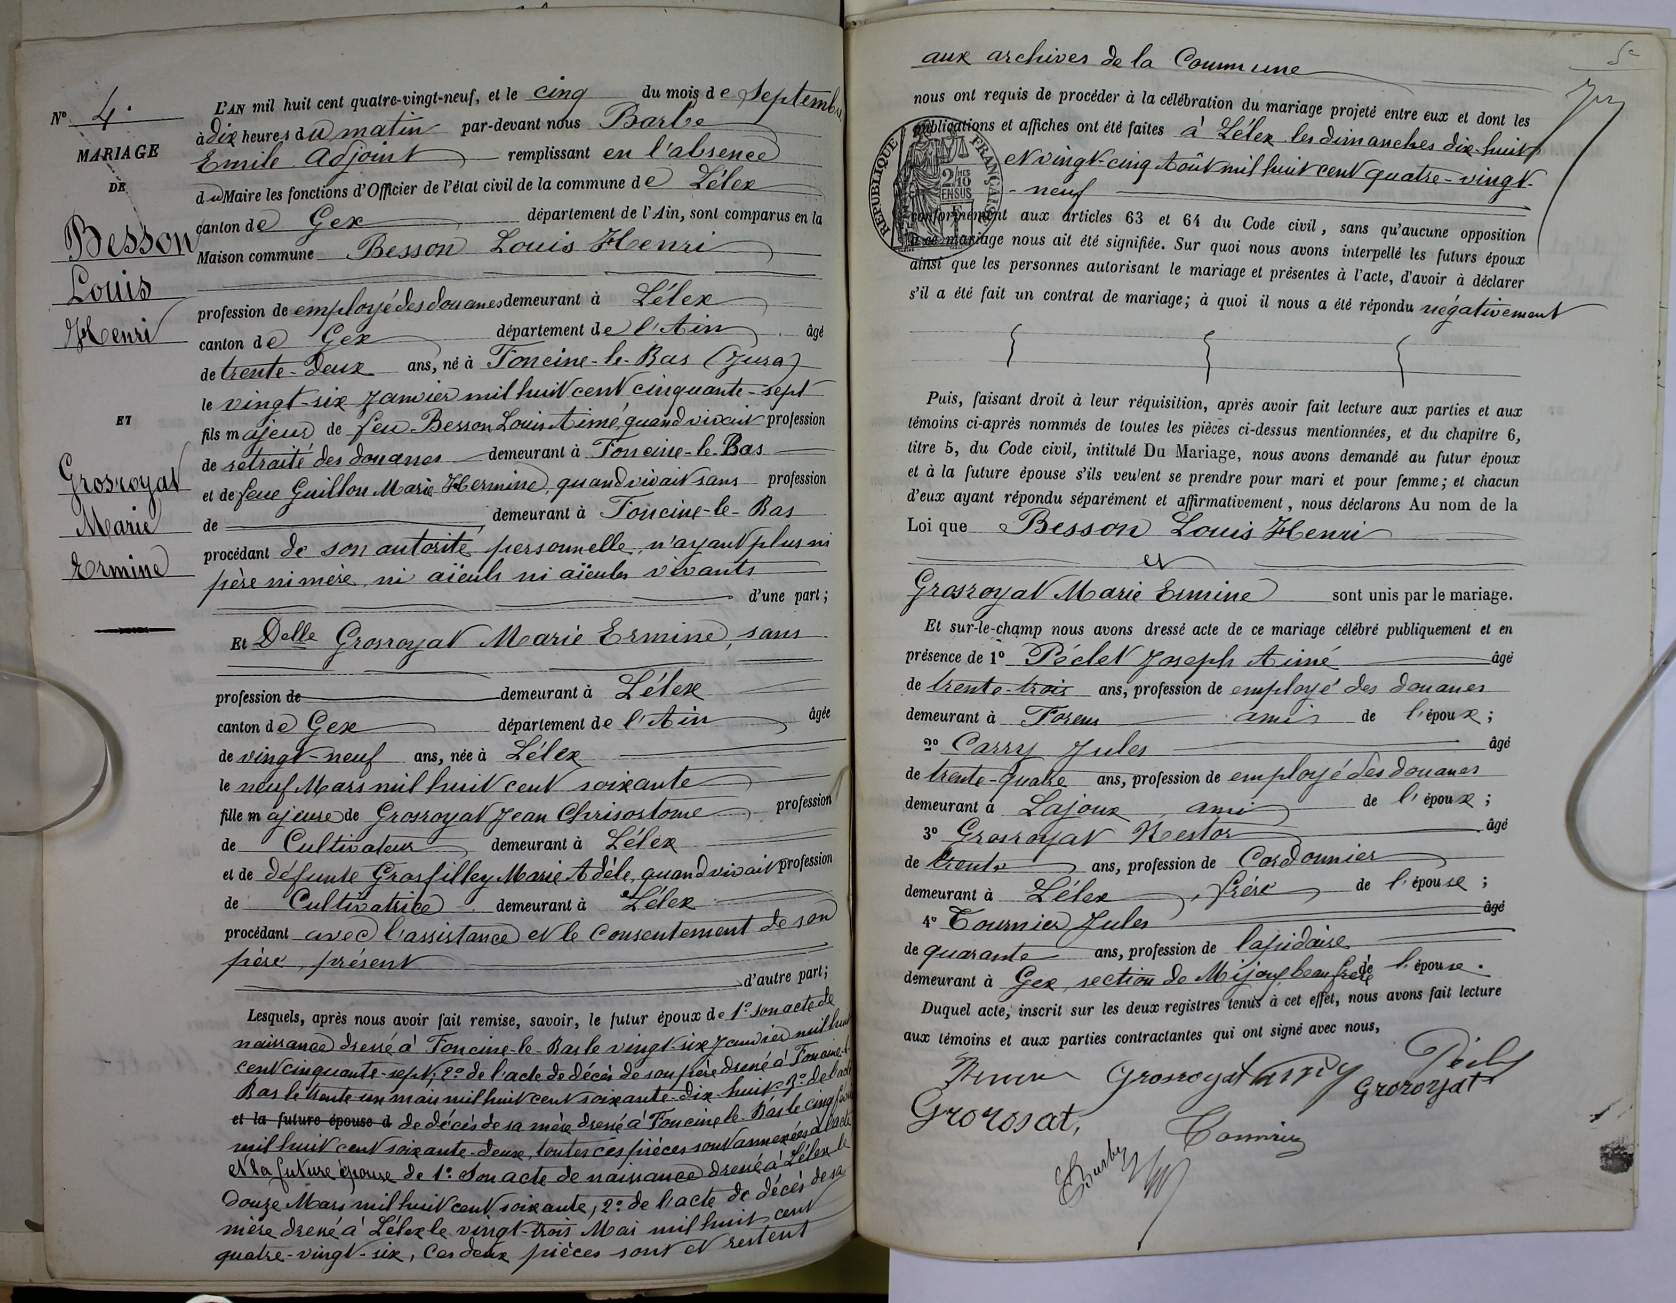 Nº 4.
MARIAGE
DE
Besson
Louis
Henri
ET
Grosroyat
Marie
Ermine
L'AN mil huit cent quatre-vingt-neuf, et le cinq du mois de Septembre
à dix heures du matin par-devant nous Barbe
Emile Adjoint remplissant en l'absence
du Maire les fonctions d'Officier de l'état civil de la commune de Lélex
canton de Gex département de l'Ain, sont comparus en la
Maison commune Besson Louis Henri
profession de employé des douanes demeurant à Lélex
canton de Gex département de l'Ain âgé
de trente-deux ans, né à Foncine-le-Bas (Jura)
le vingt-six Janvier mil huit cent cinquante-sept
fils majeur de feu Besson Louis Aimé, quand vivait profession
de retraité des douanes demeurant à Foncine-le-Bas
et de feue Guillon Marie Hermine, quand vivait sans profession
de demeurant à Foncine-le-Bas
procédant de son autorité personnelle, n'ayant plus ni
père ni mère, ni aïeuls ni aïeules vivants
d'une part;
Et Delle Grosroyat Marie Ermine, sans
profession de demeurant à Lélex
canton de Gex département de l'Ain âgée
de vingt-neuf ans, née à Lélex
le neuf Mars mil huit cent soixante
fille majeure de Grosroyat Jean Chrisostome profession
de Cultivateur demeurant à Lélex
et de défunte Grosfilley Marie Adèle, quand vivait profession
de Cultivatrice demeurant à Lélex
procédant avec l'assistance et le consentement de son
père, présent
d'autre part;
Lesquels, après nous avoir fait remise, savoir, le futur époux de 1º son acte de
naissance dressé à Foncine-le-Bas le vingt-six Janvier mil huit
cent cinquante-sept, 2º de l'acte de décès de son père dressé à Foncine-le-
Bas le trente un mai mil huit cent soixante-dix-huit, 3º de l'acte
et la future épouse d de décès de sa mère dressé à Foncine-le-Bas le cinq
mil huit cent soixante-deux, toutes ces pièces sont annexées à l'acte
et la future épouse de 1º Son acte de naissance dressé à Lélex le
Douze Mars mil huit cent soixante, 2º de l'acte de décès de sa
mère dressé à Lélex le vingt-trois Mai mil huit cent
quatre-vingt-six, Ces deux pièces sont et restent
5
aux archives de la Commune
nous ont requis de procéder à la célébration du mariage projeté entre eux et dont les
publications et affiches ont été faites à Lélex les dimanches dix-huit
et vingt-cinq Août mil huit cent quatre-vingt-
-neuf
RÉPUBLIQUE FRANÇAISE
2/10 EN SUS
conformément aux articles 63 et 64 du Code civil, sans qu'aucune opposition
à ce mariage nous ait été signifiée. Sur quoi nous avons interpellé les futurs époux
ainsi que les personnes autorisant le mariage et présentes à l'acte, d'avoir à déclarer
s'il a été fait un contrat de mariage; à quoi il nous a été répondu négativement
Puis, faisant droit à leur réquisition, après avoir fait lecture aux parties et aux
témoins ci-après nommés de toutes les pièces ci-dessus mentionnées, et du chapitre 6,
titre 5, du Code civil, intitulé Du Mariage, nous avons demandé au futur époux
et à la future épouse s'ils veulent se prendre pour mari et pour femme; et chacun
d'eux ayant répondu séparément et affirmativement, nous déclarons Au nom de la
Loi que Besson Louis Henri
et
Grosroyat Marie Ermine sont unis par le mariage.
Et sur-le-champ nous avons dressé acte de ce mariage célébré publiquement et en
présence de 1º Péclet Joseph Aimé âgé
de trente-trois ans, profession de employé des douanes
demeurant à Forens ami de l'époux;
2º Carry Jules âgé
de trente-quatre ans, profession de employé des douanes
demeurant à Lajoux ami de l'époux;
3º Grosroyat Nestor âgé
de trente ans, profession de Cordonnier
demeurant à Lélex, frère de l'épouse;
4º Tournier Jules âgé
de quarante ans, profession de lapidaire
demeurant à Gex, section de Mijoux, beau frère de l'épouse.
Duquel acte, inscrit sur les deux registres tenus à cet effet, nous avons fait lecture
aux témoins et aux parties contractantes qui ont signé avec nous,
Grosroyat Carry
Groroyat
Grorosat,
Tournier